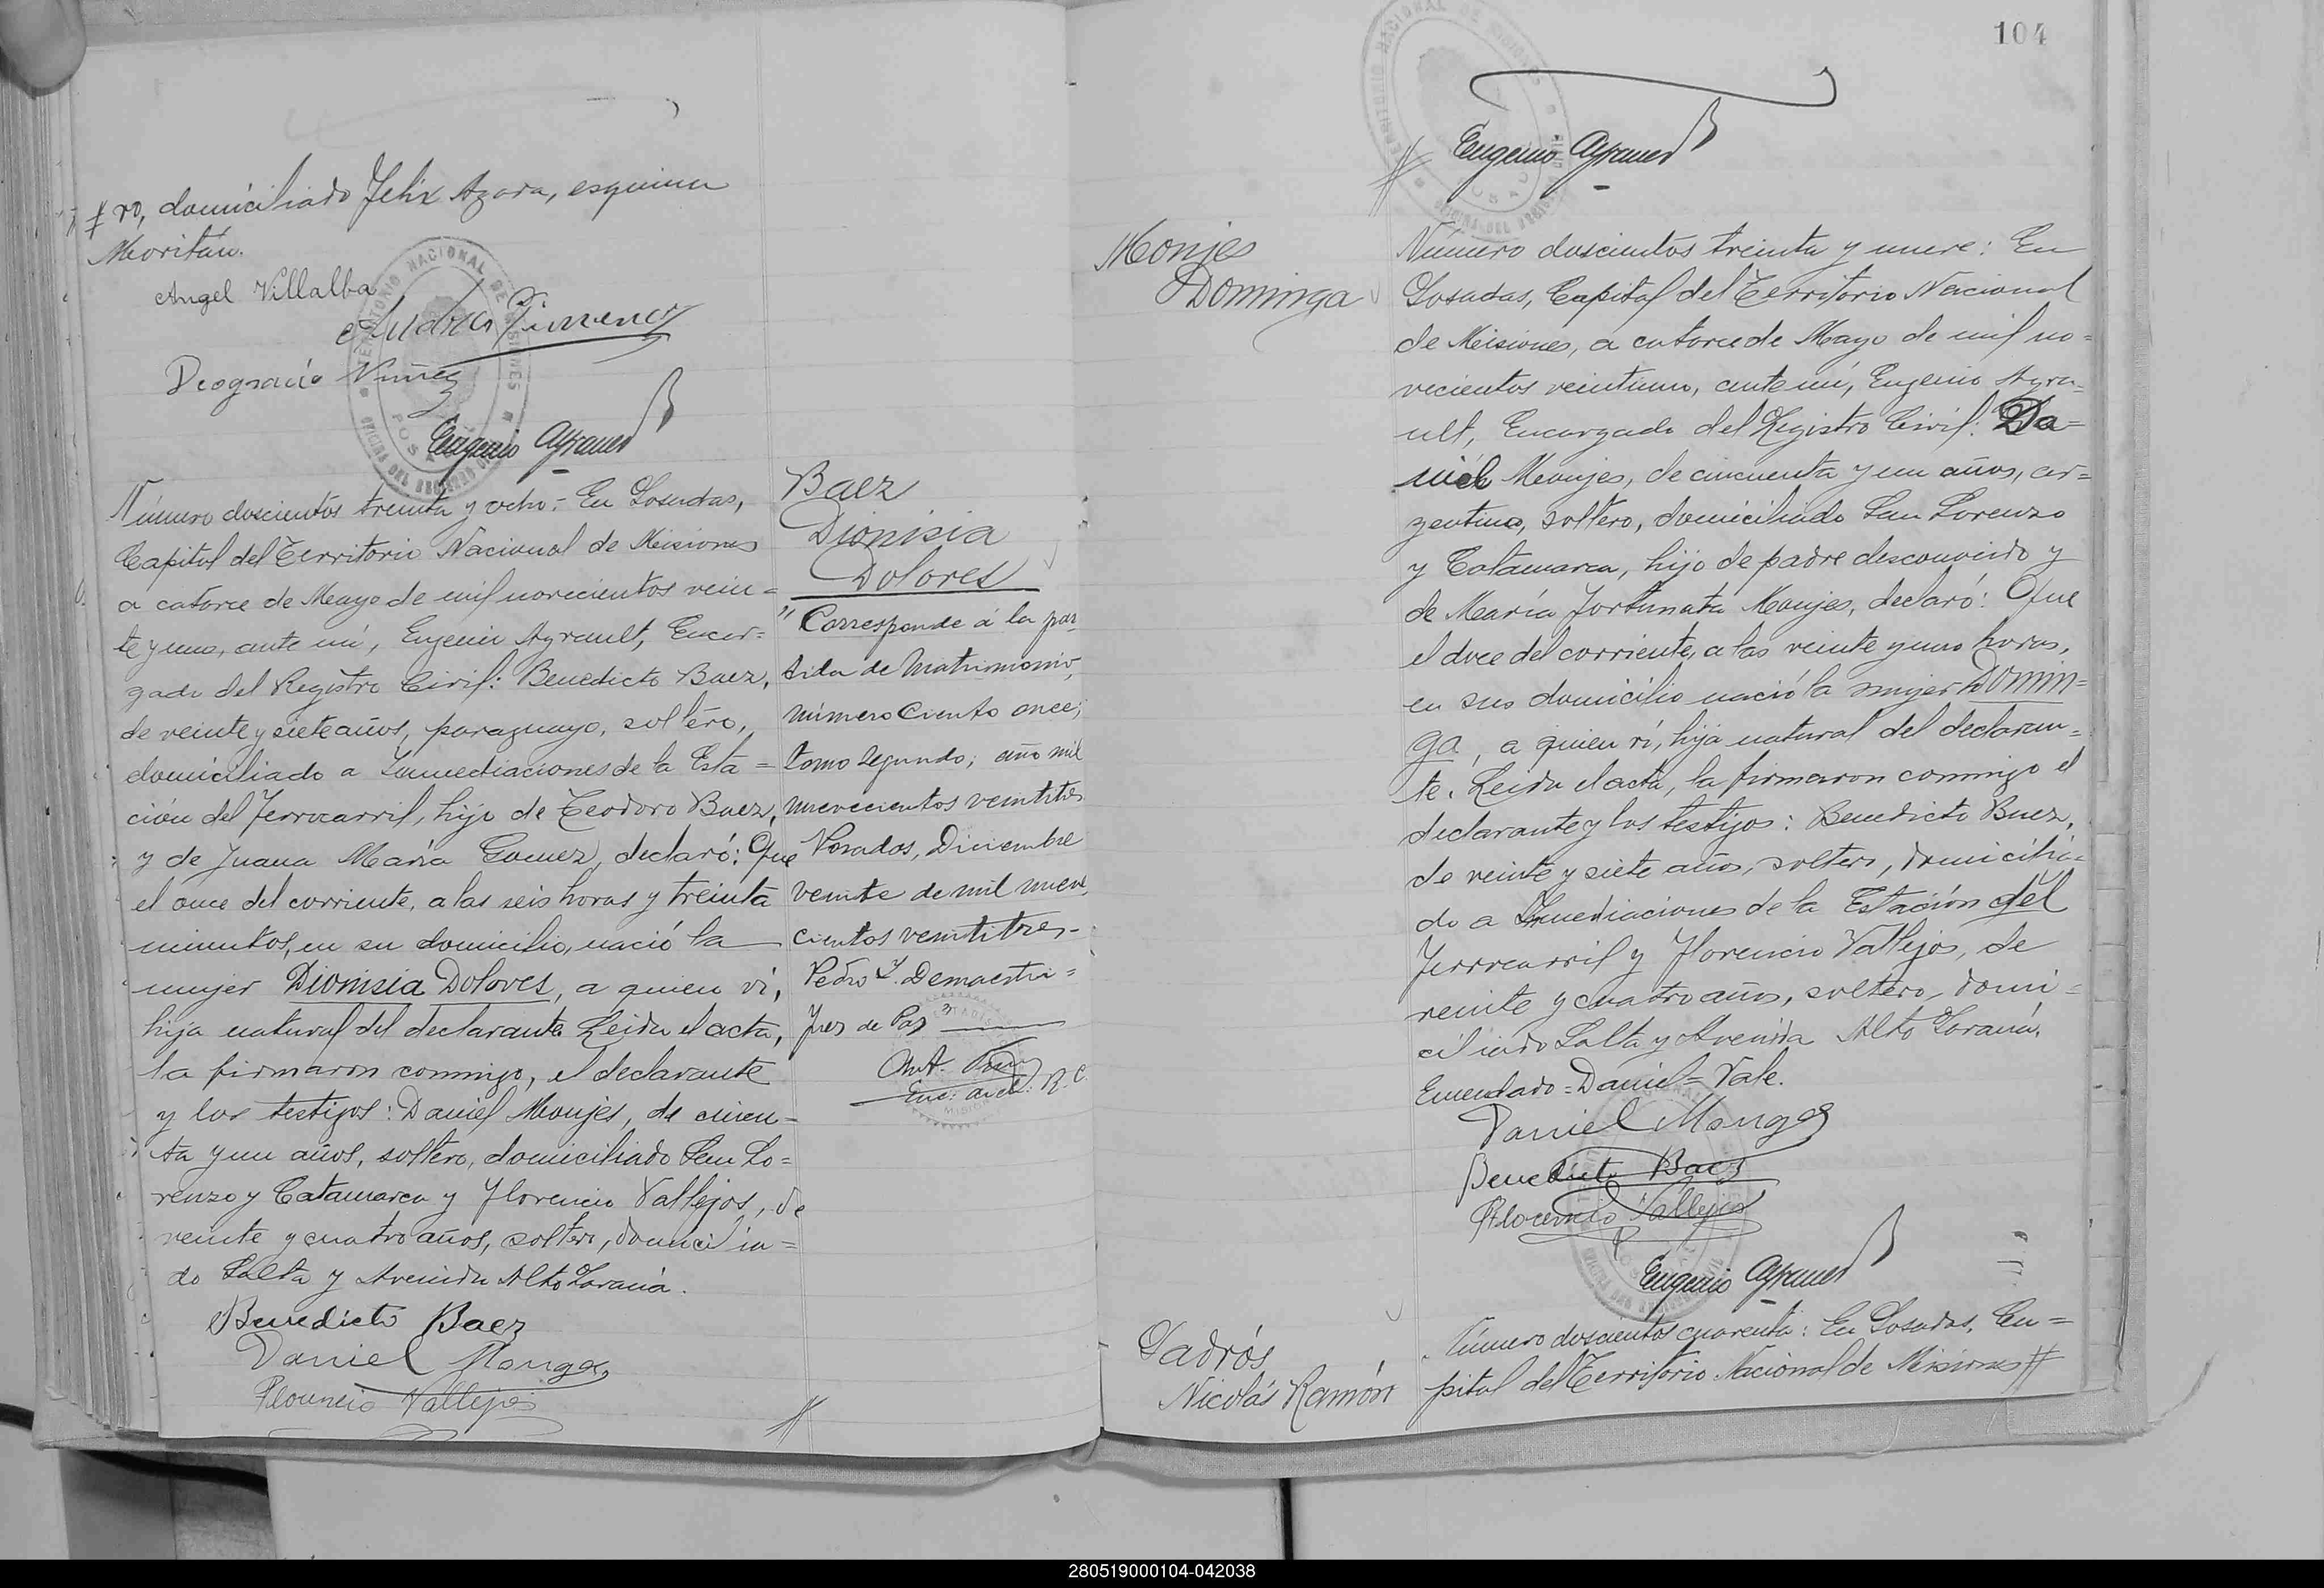 ro, domiciliado Felix Azara, esquina
Moritán.
Angel Villalba
Andres Jimenez
Deogracio Nuñez
Eugenio Ayrault
Número doscientos treinta y ocho: En Posadas,
Capital del Territorio Nacional de Misiones
a catorce de Mayo de mil novecientos vein=
te y uno, ante mí, Eugenio Ayrault, Encar=
gado del Registro Civil: Benedicto Baez,
de veinte y siete años, paraguayo, soltero,
domiciliado a Inmediaciones de la Esta=
ción del Ferrocarril, hijo de Teodoro Baez,
y de Juana María Gomez, declaró: Que
el once del corriente, a las seis horas y treinta
minutos, en su domicilio, nació la
mujer Dionisia Dolores, a quien ví,
hija natural del declarante. Leida el acta,
la firmaron conmigo, el declarante
y los testigos: Daniel Monjes, de cincuen=
ta y un años, soltero, domiciliado San Lo=
renzo y Catamarca y Florencio Vallejos, de
veinte y cuatro años, soltero, domicilia=
do Salta y Avenida Alto Paraná.
Benedicto Baez
Daniel Monges
Florencio Vallejos
Baez
Dionisia
Dolores
"Corresponde á la par
tida de Matrimonio,
número Ciento once;
tomo segundo; año mil
nuevecientos veintitres
Posadas, Diciembre
veinte de mil nueve
cientos veintitres.-
Pedro Y. Demaestri=
Juez de Paz
Enc: arch: R. C.
104
Eugenio Ayrault
Monjes
Dominga
Número doscientos treinta y nueve: En
Posadas, Capital del Territorio Nacional
de Misiones, a catorce de Mayo de mil no=
vecientos veintiuno, ante mí, Eugenio Ayra=
ult, Encargado del Registro Civil: Da=
niel Monjes, de cincuenta y un años, ar=
gentino, soltero, domiciliado San Lorenzo
y Catamarca, hijo de padre desconocido y
de María Fortunata Monjes, declaró: Que
el doce del corriente, a las veinte y uno horas,
en su domicilio nació la mujer Domin=
ga, a quien ví, hija natural del declaran=
te. Leida el acta, la firmaron conmigo el
declarante y los testigos: Benedicto Baez,
de veinte y siete años, soltero, domicilia=
do a Inmediaciones de la Estación del
Ferrocarril y Florencio Vallejos, de
veinte y cuatro años, soltero, domi=
ciliado Salta y Avenida Alto Paraná.
Enmendado=Daniel=Vale.
Daniel Monges
Benedicto Baez
Florencio Vallejos
Eugenio Ayrault
Padrós
Nicolás Ramón
Número doscientos cuarenta: En Posadas, Ca=
pital del Territorio Nacional de Misiones
280519000104-042038